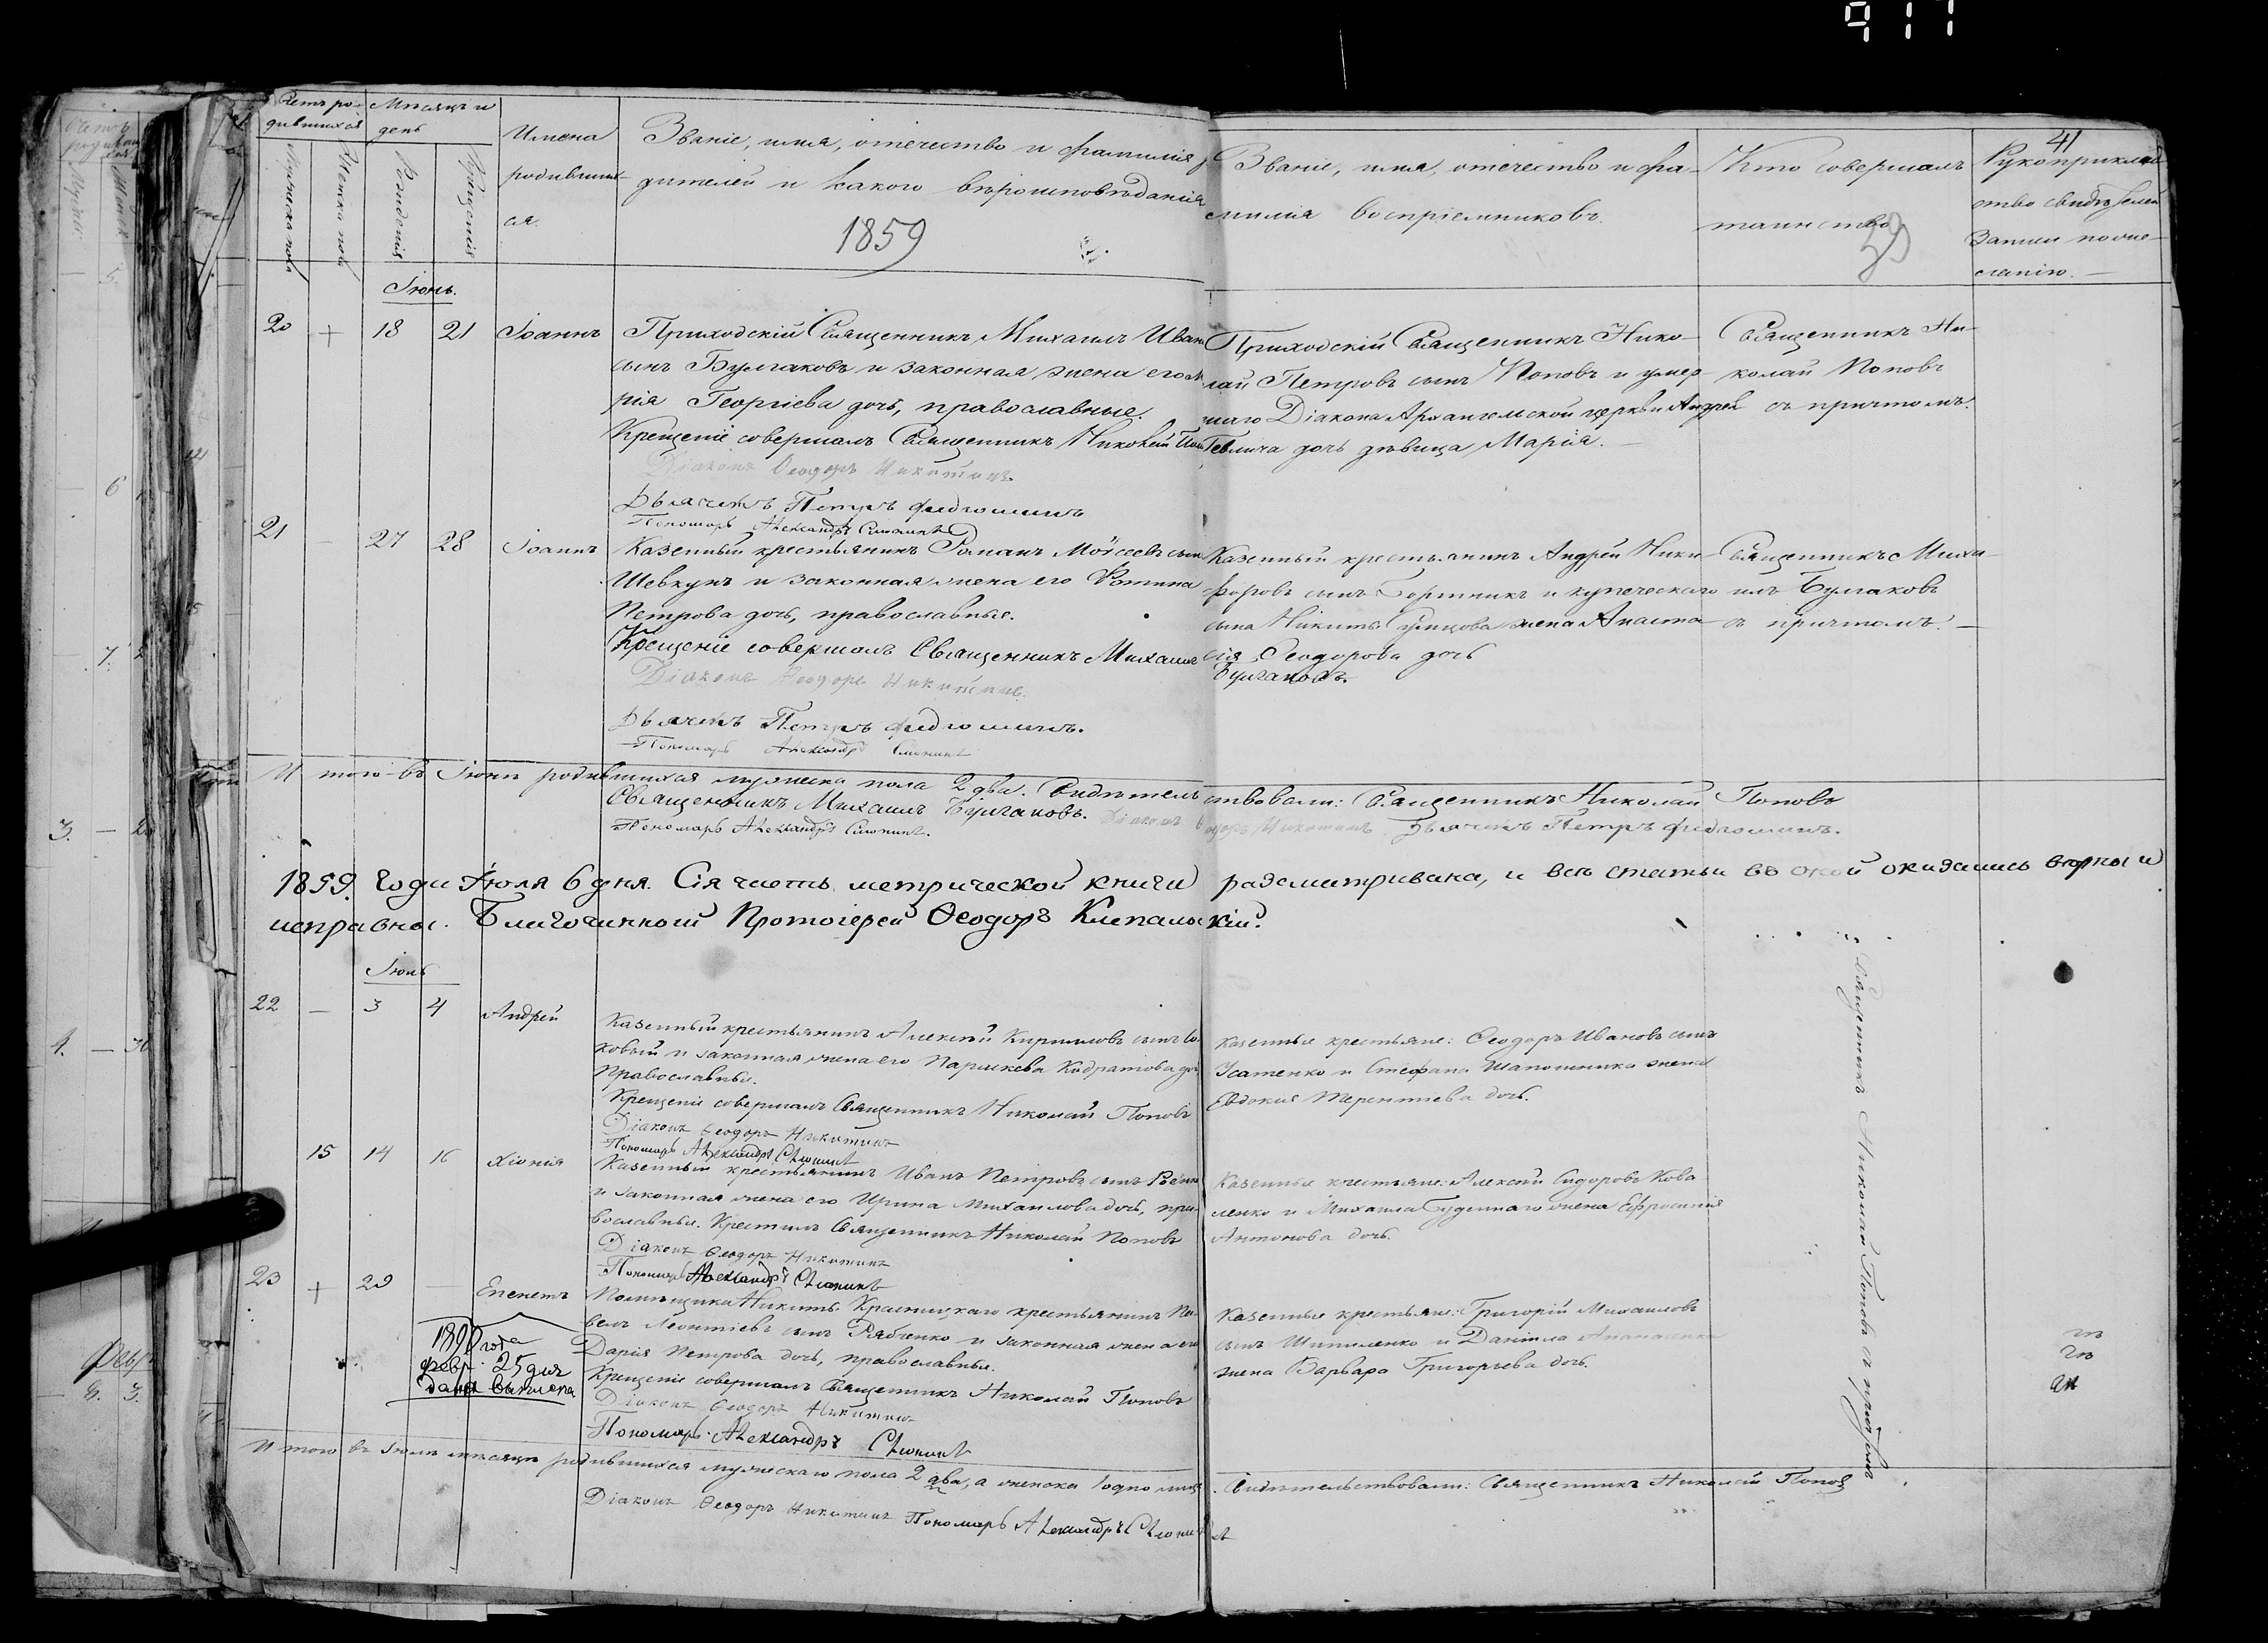 917
41
Счетъ ро-
дившихся
Мѣсяцъ и
день
Имена
родивших-
ся.
мужеска пола
Женска пола
Рожденія
Крещенія
Званіе, имя, отечество и фамилія
дителей и какого вѣроисповѣданія
1859
Званіе, имя, отечество и фа-
милія воспріемниковъ.
Кто совершалъ
таинство
Рукоприклад
ство свидѣтелей
записи по же-
ланію.
Іюнь.
20 + 18 21 Іоаннъ
Приходскій Священникъ Михаилъ Иван
сынъ Булгаковъ и законная жена его М
рія Георгіева дочь, православные.
Крещеніе совершалъ Священникъ Николай Поп
Діаконъ Ѳеодоръ Никитинъ
Дьячекъ Петръ
Пономарь Александръ
Приходскій Священникъ Нико-
лай Петровъ сынъ Поповъ и умер-
шаго Діакона Архангельской церкви Андрея
дочь дѣвица Марія.
Священникъ Ни-
колай Поповъ
съ причтомъ.
21 — 27 28 Іоаннъ
Казенный крестьянинъ Романъ Моѵсеевъ сынъ
Шевкунъ и законная жена его Фотина
Петрова дочь, православные.
Крещеніе совершалъ Священникъ Михаилъ
Булгаковъ.
Діаконъ Ѳеодоръ Никитинъ.
Дьячекъ Петръ
Пономарь Александръ
Казенный крестьянинъ Андрей Ники-
форовъ сынъ и купеческаго
сына Никиты жена Анаста-
сія Ѳеодорова дочь
Священникъ Миха-
илъ Булгаковъ
съ причтомъ. —
Итого въ Іюнѣ родившихся мужеска пола 2 два. Свидѣтельствовали: Священникъ Николай Поповъ
Священникъ Михаилъ Булгаковъ. Діаконъ Ѳеодоръ Никитинъ Дьячекъ Петръ
Пономарь Александръ
1859. года Іюля 6 дня. Сія часть метрической книги разсматривана, и всѣ статьи въ оной оказались вѣрны и
исправны. Благочинный Протоіерей Ѳеодоръ Клепальскій.
Іюль
22 — 3 4 Андрей
Казенный крестьянинъ Алексѣй Кирилловъ сынъ
и законная жена его Параскева Кодратова доч
Православные.
Крещеніе совершалъ Священникъ Николай Поповъ
Діаконъ Ѳеодоръ Никитинъ
Пономарь Александръ
Казенные крестьяне: Ѳеодоръ Ивановъ сынъ
Усатенко и Стефана Шапошника жена
Евдокія Терентіева дочь.
15 14 16 Хіонія
Казенный крестьянинъ Иванъ Петровъ сынъ
и законная жена его Ирина Михаилова дочь, пра-
вославные. Крестилъ Священникъ Николай Поповъ
Діаконъ Ѳеодоръ Никитинъ
Пономарь Александръ
Казенные крестьяне: Алексѣй Сидоровъ Кова
ленко и Михаила Буденнаго жена Ефросинія
Антонова дочь.
23 + 29 — Епенетъ
Помѣщика Никиты Красницкаго крестьянинъ Па-
велъ Леонтіевъ сынъ Рябченко и законная жена его
Дарія Петрова дочь, православные.
Крещеніе совершалъ Священникъ Николай Поповъ
Діаконъ Ѳеодоръ Никитинъ
Пономарь Александръ
года
февр. 25 дня
дана выписка
Казенные крестьяне: Григорій Михаиловъ
сынъ и Даніила
жена Варвара Григорьева дочь.
Священникъ Николай Поповъ съ причтомъ
Итого въ Іюлѣ мѣсяцѣ родившихся мужескаго пола 2 два, а женска 1 одно лице
. Свидѣтельствовали: Священникъ Николай Поповъ
Діаконъ Ѳеодоръ Никитинъ Пономарь Александръ